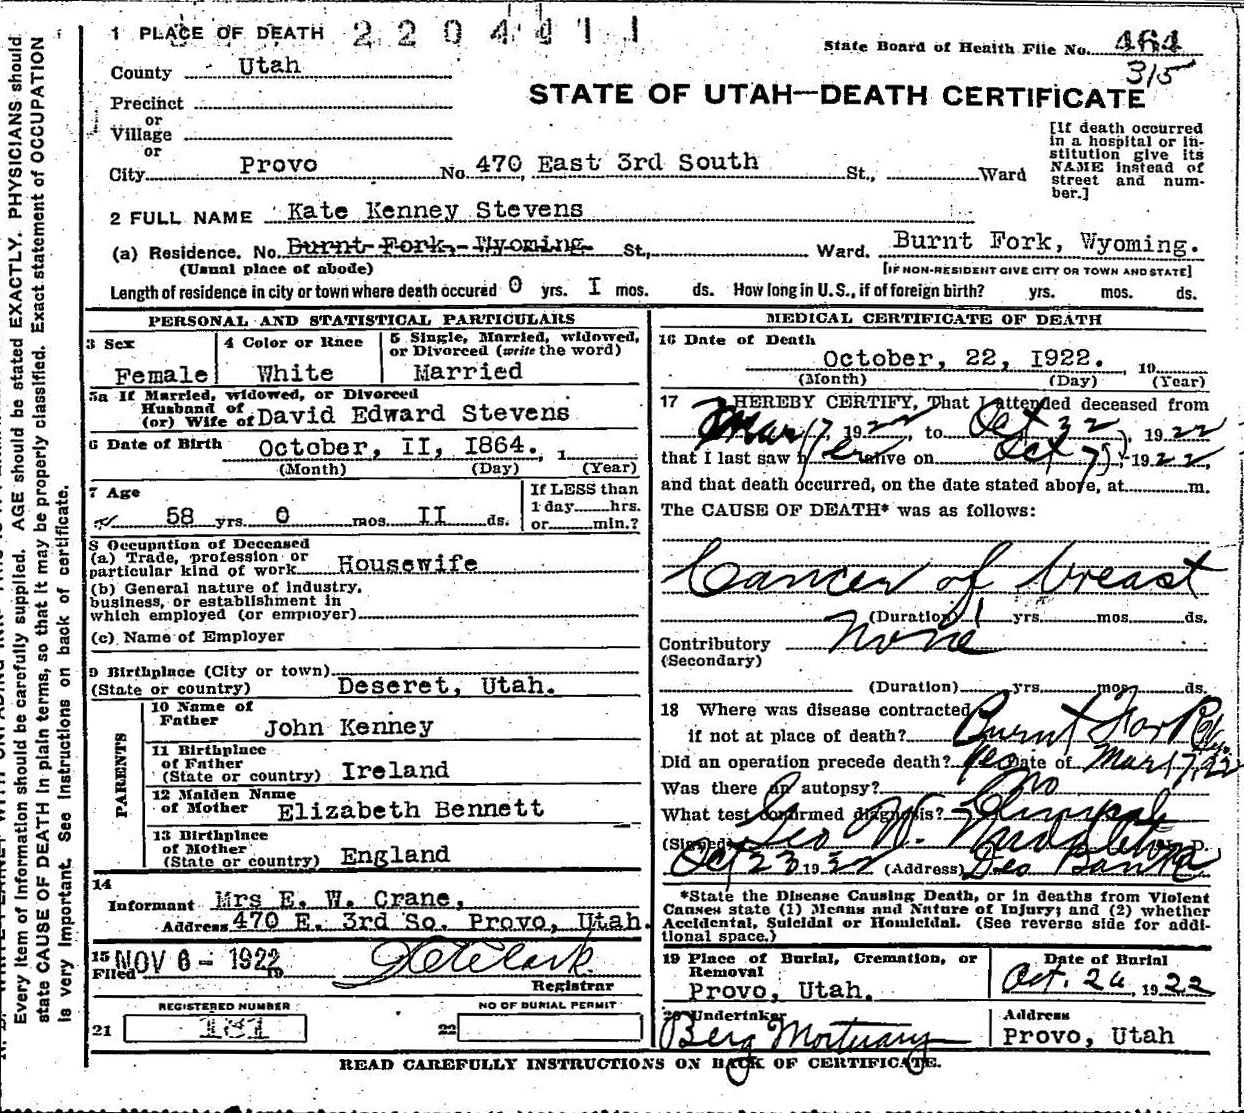 1 PLACE OF DEATH 2 2 0 4 4 1 1
State Board of Health File No. 464
315
County Utah
STATE OF UTAH—DEATH CERTIFICATE
Precinct
or
Village
or
City Provo No. 470 East 3rd South St., Ward
[If death occurred
in a hospital or in-
stitution give its
NAME instead of
street and num-
ber.]
2 FULL NAME Kate Kenney Stevens
(a) Residence. No. Burnt Fork, Wyoming. St., Ward. Burnt Fork, Wyoming.
(Usual place of abode) [IF NON-RESIDENT GIVE CITY OR TOWN AND STATE]
Length of residence in city or town where death occured 0 yrs. I mos. ds. How long in U.S., if of foreign birth? yrs. mos. ds.
PERSONAL AND STATISTICAL PARTICULARS
3 Sex 4 Color or Race 5 Single, Married, widowed,
or Divorced (write the word)
Female White Married
5a If Married, widowed, or Divorced
Husband of
(or) Wife of David Edward Stevens
6 Date of Birth October, II, 1864. 1
(Month) (Day) (Year)
7 Age If LESS than
1 day hrs.
58 yrs. 0 mos. II ds. or min.?
8 Occupation of Deceased
(a) Trade, profession or
particular kind of work Housewife
(b) General nature of industry,
business, or establishment in
which employed (or employer)
(c) Name of Employer
9 Birthplace (City or town)
(State or country) Deseret, Utah.
PARENTS
10 Name of
Father John Kenney
11 Birthplace
of Father
(State or country) Ireland
12 Maiden Name
of Mother Elizabeth Bennett
13 Birthplace
of Mother
(State or country) England
14
Informant Mrs E. W. Crane,
Address 470 E. 3rd So. Provo, Utah.
15 Filed NOV 6 - 1922 19
Registrar
REGISTERED NUMBER NO OF BURIAL PERMIT
21 181 22
MEDICAL CERTIFICATE OF DEATH
16 Date of Death
October, 22, I922. 19
(Month) (Day) (Year)
17 I HEREBY CERTIFY, That I attended deceased from
Mar 17, 1922, to Oct 22, 1922
that I last saw her alive on Oct 7, 1922,
and that death occurred, on the date stated above, at m.
The CAUSE OF DEATH* was as follows:
Cancer of breast
(Duration) 1 yrs. mos. ds.
Contributory None
(Secondary)
(Duration) yrs. mos. ds.
18 Where was disease contracted
if not at place of death? Burnt Fork Wyo.
Did an operation precede death? yes Date of Mar 17, 22
Was there an autopsy? No
What test confirmed diagnosis? Clinical
(Signed) Geo W. Middleton M. D.
Oct 23 1922 (Address) Des Bank
*State the Disease Causing Death, or in deaths from Violent
Causes state (1) Means and Nature of Injury; and (2) whether
Accidental, Suicidal or Homicidal. (See reverse side for addi-
tional space.)
19 Place of Burial, Cremation, or
Removal
Provo, Utah.
Date of Burial
Oct. 24, 1922
20 Undertaker
Berg Mortuary
Address
Provo, Utah
READ CAREFULLY INSTRUCTIONS ON BACK OF CERTIFICATE.
Every item of information should be carefully supplied. AGE should be stated EXACTLY. PHYSICIANS should
state CAUSE OF DEATH in plain terms, so that it may be properly classified. Exact statement of OCCUPATION
is very important. See instructions on back of certificate.